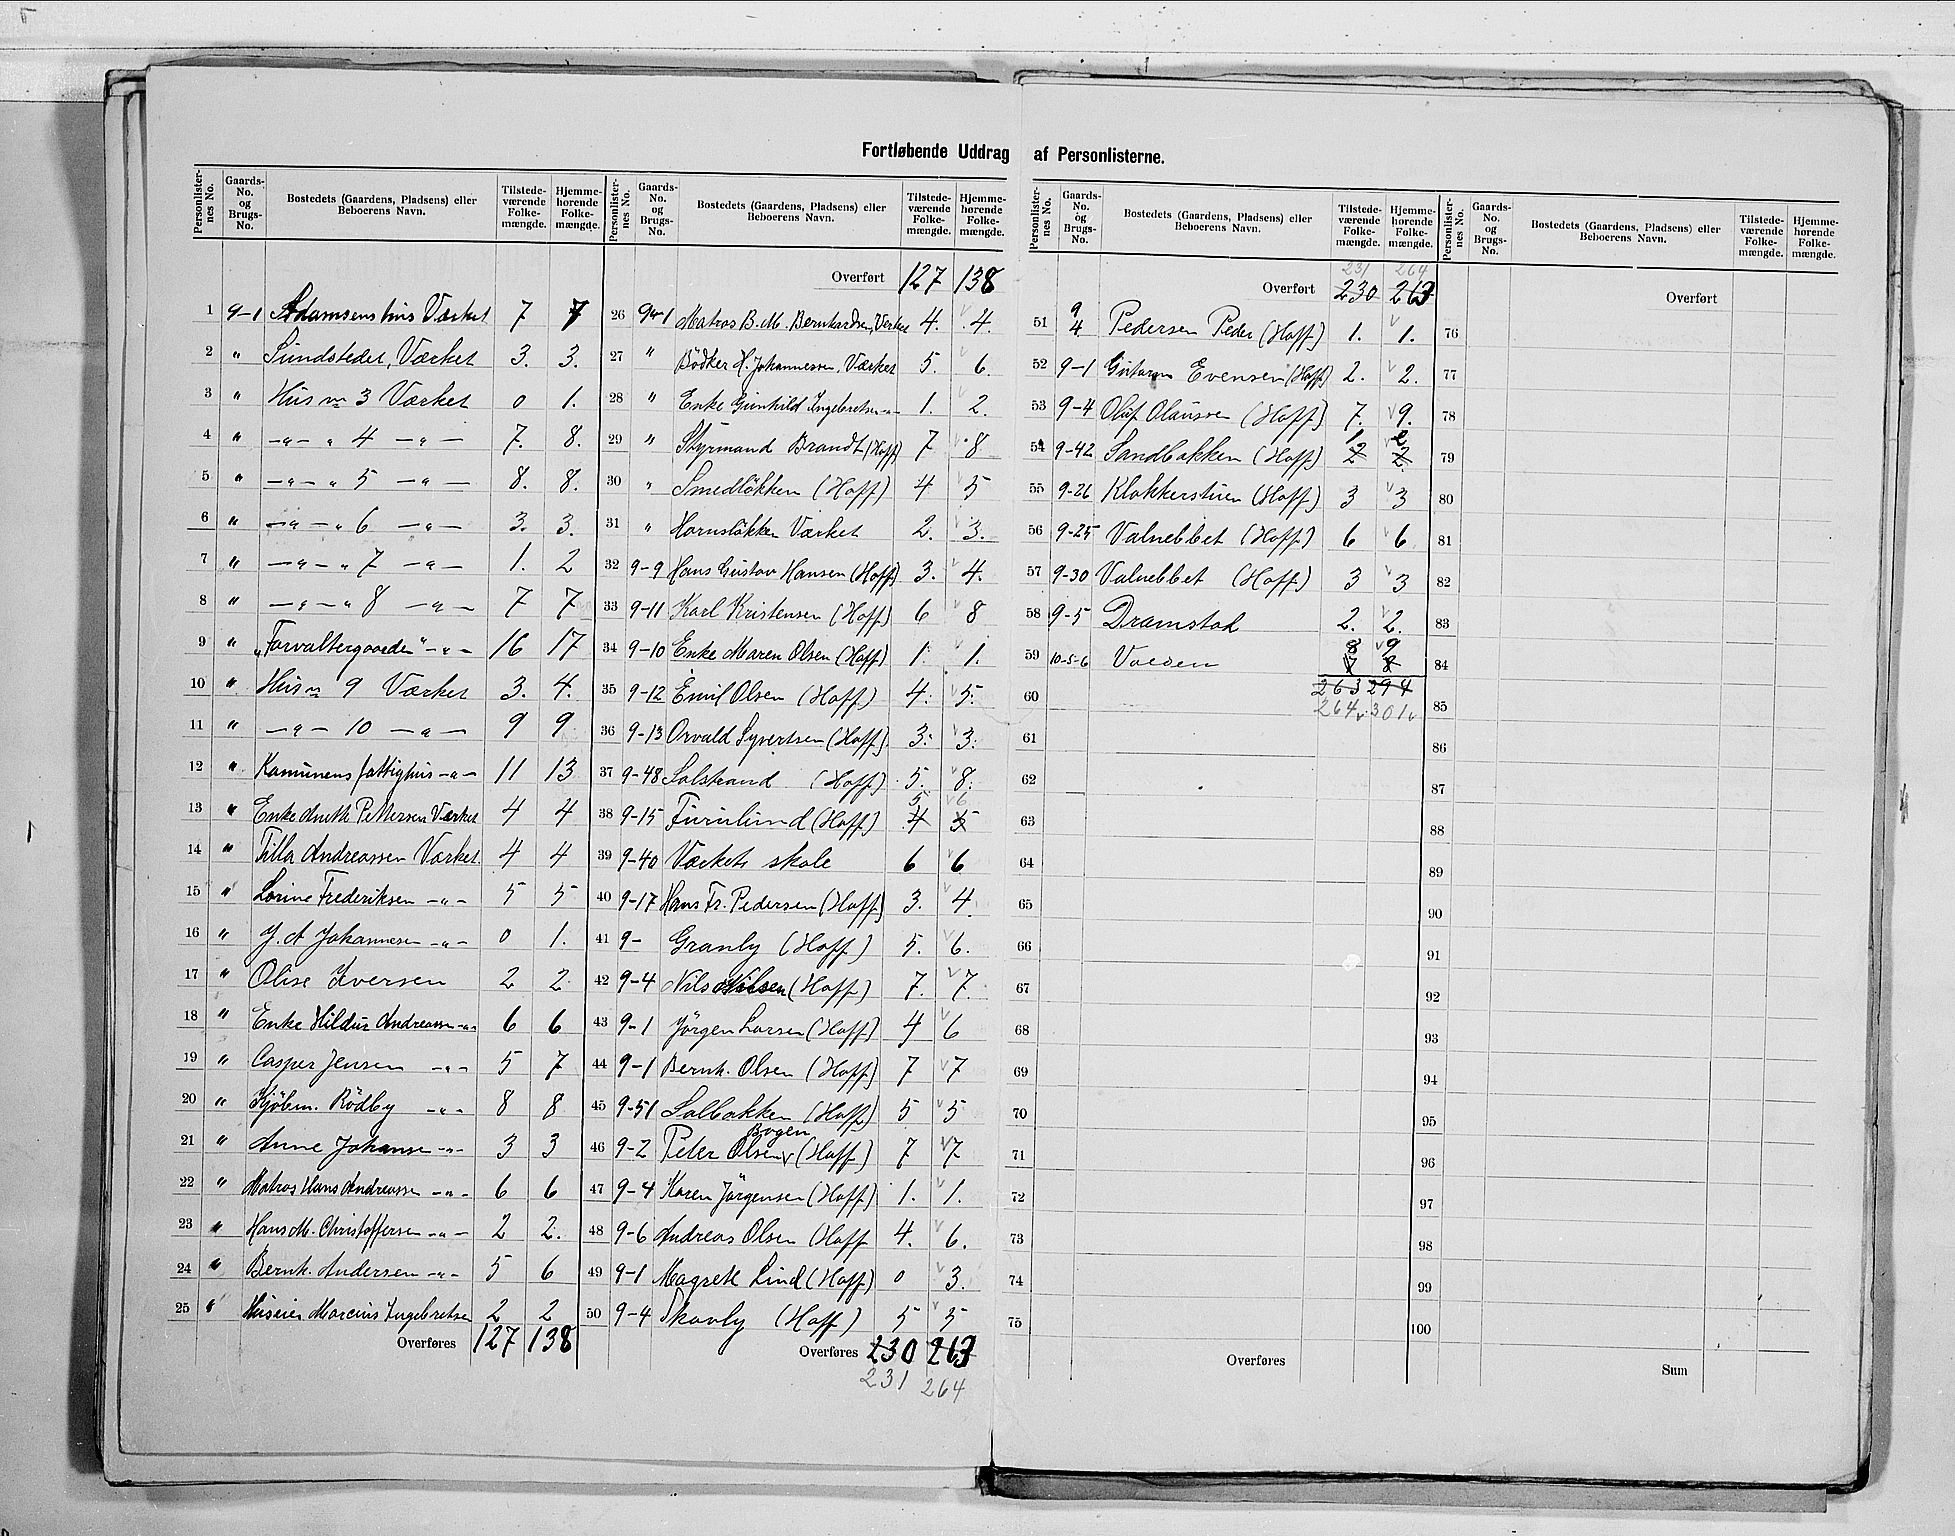 Fortløbende Uddrag af Personlisterne.
Personlisternes No. Gaards-No. og Brugs-No. Bostedets (Gaardens, Pladsens) eller Beboerens Navn. Tilstedeværende Folkemængde. Hjemmehørende Folkemængde.
1 9-1 Adamsens hus Værket 7 7
2 " Sundstedet, Værket 3. 3.
3 " Hus no 3 Værket 0 1.
4 " —"— " 4 —"— 7. 8.
5 " —"— " 5 —"— 8. 8.
6 " —"— " 6 —"— 3. 3.
7 " —"— " 7 —"— 1. 2
8 " —"— " 8 —"— 7 7
9 " „Forvaltergaarden" -"- 16 17
10 " Hus no 9 Værket 3. 4.
11 " —"— 10 —"— 9 9
12 " Kamunens fattighus -"- 11 13
13 " Enke Anethe Pettersen Værket 4 4
14 " Tilla Andreassen Værket 4 4
15 " Lorine Frederiksen -"- 5 5
16 " J. A Johannesen -"- 0 1.
17 " Olise Iversen 2 2
18 " Enke Hildur Andreassen -"- 6 6
19 " Casper Jensen -"- 5 7
20 " Kjöbm. Rödby -"- 8 8
21 " Anne Johansen -"- 3 3
22 " Matros Hans Andreassen -"- 6 6
23 " Hans M. Christoffersen -"- 2 2.
24 " Bernh. Andersen -"- 5 6
25 " Huseier Marcius Ingebretsen 2 2
Overføres 127 138
Personlisternes No. Gaards-No. og Brugs-No. Bostedets (Gaardens, Pladsens) eller Beboerens Navn. Tilstedeværende Folkemængde. Hjemmehørende Folkemængde.
Overført 127 138
26 9-1 Matros B. M. Bernhardsen, Værket 4. 4.
27 " Bödker H. Johannessen, Værket 5. 6.
28 " Enke Gunhild Ingebretsen -"- 1. 2.
29 " Styrmand Brandt (Hoff) 7 8
30 " Smedløkken (Hoff) 4 5
31 " Hornsløkken Værket 2. 3.
32 9-9 Hans Gustav Hansen (Hoff) 3. 4.
33 9-11 Karl Kristensen (Hoff) 6 8
34 9-10 Enke Maren Olsen (Hoff) 1. 1.
35 9-12 Emil Olsen (Hoff) 4. 5.
36 9-13 Orvald Syvertsen (Hoff). 3. 3.
37 9-48 Solstrand (Hoff) 5. 8.
5 6
38 9-15 Furulund (Hoff) 4 5
39 9-40 Værkets skole 6 6
40 9-17 Hans Fr. Pedersen (Hoff) 3. 4.
41 9- Granly (Hoff) 5. 6.
42 9-4 Nils Nilsen (Hoff) 7. 7.
43 9-1 Jörgen Larsen (Hoff) 4 6
44 9-1 Bernh. Olsen (Hoff) 7 7
45 9-51 Solbakken (Hoff) 5 5
Bogen
46 9-2 Peter Olsen (Hoff) 7 7
47 9-4 Karen Jörgensen (Hoff) 1. 1.
48 9-6 Andreas Olsen (Hoff 4. 6.
49 9-1 Magrete Lind (Hoff) 0 3.
50 9-4 Skovly (Hoff) 5 5
Overføres 230 263
231 264
Personlisternes No. Gaards-No. og Brugs-No. Bostedets (Gaardens, Pladsens) eller Beboerens Navn. Tilstedeværende Folkemængde. Hjemmehørende Folkemængde.
231 264
Overført 230 263
51 9/4 Pedersen Peder (Hoff) 1. 1.
52 9-1 Evensen (Hoff) 2. 2.
53 9-4 Oluf Olaussen (Hoff) 7. 9.
1 2
54 9-42 Sandbakken (Hoff) 2 2
55 9-26 Klokkerstuen (Hoff) 3 3
56 9-25 Valnebbet (Hoff) 6 6
57 9-30 Valnebbet (Hoff) 3 3
58 9-5 Dramstad 2. 2.
8 9
59 10-5-6 Valsen 7 8
60 263 294
264 301
61
62
63
64
65
66
67
68
69
70
71
72
73
74
75
Overføres
Personlisternes No. Gaards-No. og Brugs-No. Bostedets (Gaardens, Pladsens) eller Beboerens Navn. Tilstedeværende Folkemængde. Hjemmehørende Folkemængde.
Overført
76
77
78
79
80
81
82
83
84
85
86
87
88
89
90
91
92
93
94
95
96
97
98
99
100
Sum